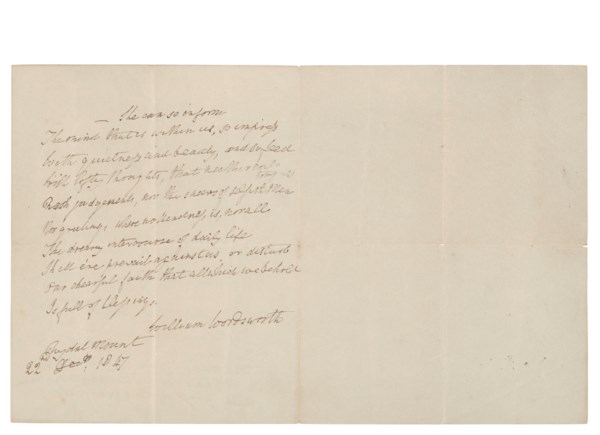 — She can so inform
The mind that is within us, so impress
With quietness and beauty, and so feed
With lofty thoughts, that neither evil
tongues
Rash judgments, nor the sneers of selfish Men
Nor greetings where no kindness is, nor all
The dreary intercourse of daily life
Shall e'er prevail against us, or disturb
Our chearful faith that all which we behold
Is full of blessings.
William Wordsworth
Rydal Mount
22nd 18